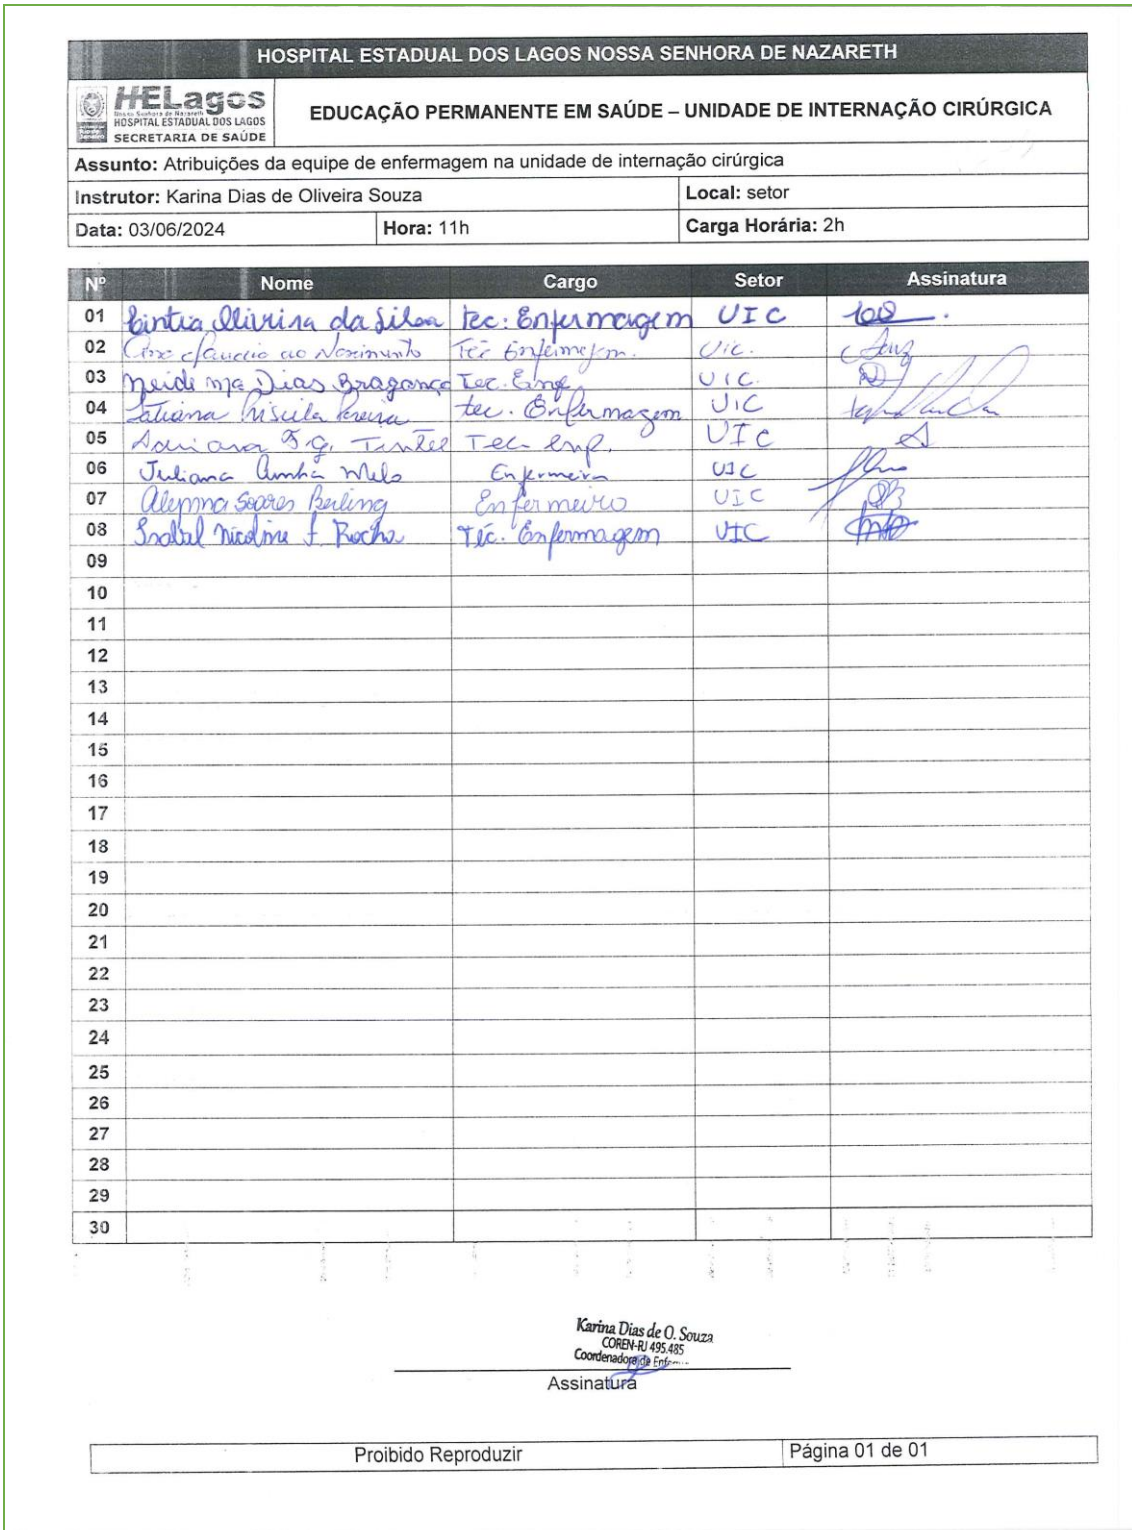 HOSPITAL ESTADUAL DOS LAGOS NOSSA SENHORA DE NAZARETH
HELagos
Nossa Senhora de Nazareth
HOSPITAL ESTADUAL DOS LAGOS
SECRETARIA DE SAÚDE
EDUCAÇÃO PERMANENTE EM SAÚDE – UNIDADE DE INTERNAÇÃO CIRÚRGICA
Assunto: Atribuições da equipe de enfermagem na unidade de internação cirúrgica
Instrutor: Karina Dias de Oliveira Souza Local: setor
Data: 03/06/2024 Hora: 11h Carga Horária: 2h
Nº Nome Cargo Setor Assinatura
01 Cintia Oliveira da Silva tec. Enfermagem UIC
02 Nascimento Téc Enfermagem. Uic.
03 Neide Mª Dias Bragança Tec. Enf UIC.
04 Tatiana Priscila Pereira tec. Enfermagem UIC
05 Adriana F. G. Tec enf. UIC
06 Juliana Cunha Melo Enfermeira UIC
07 Soares Enfermeiro UIC
08 Nicoline f. Rocha Téc. Enfermagem UIC
09
10
11
12
13
14
15
16
17
18
19
20
21
22
23
24
25
26
27
28
29
30
Karina Dias de O. Souza
COREN-RJ 495.485
Coordenadora de
Assinatura
Proibido Reproduzir Página 01 de 01